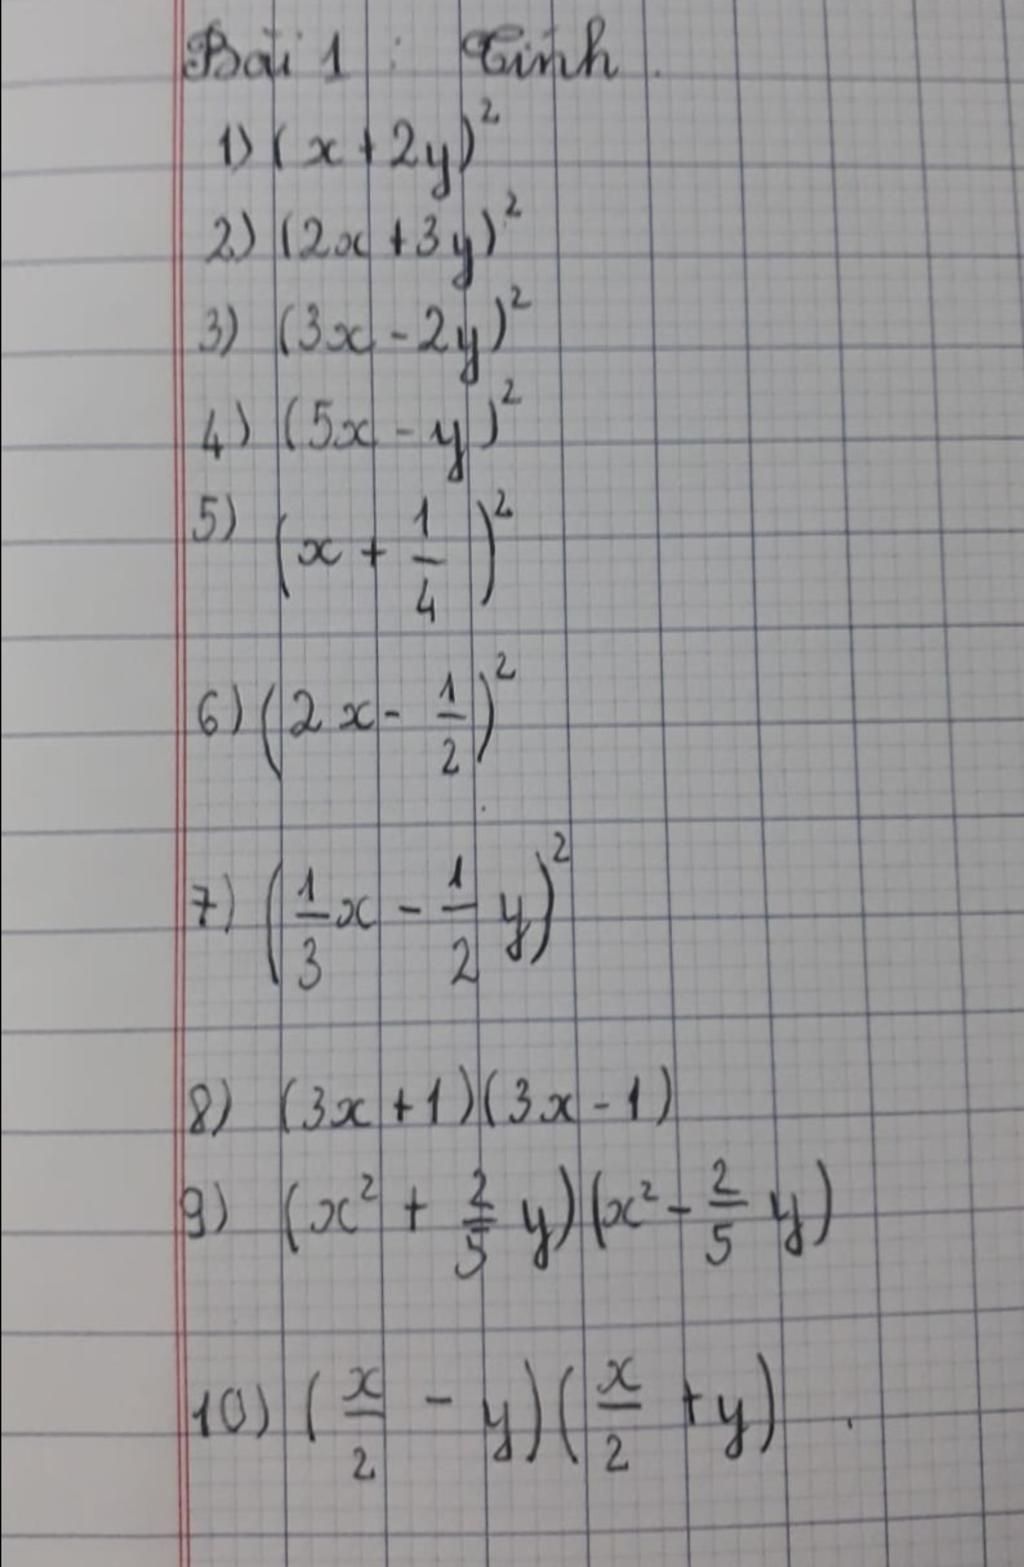 Bài 1 : Tính.
1) (x + 2y)²
2) (2x + 3y)²
3) (3x - 2y)²
4) (5x - y)²
5) (x + 1/4)²
6) (2x - 1/2)²
7) (1/3 x - 1/2 y)²
8) (3x + 1)(3x - 1)
9) (x² + 2/5 y)(x² - 2/5 y)
10) (x/2 - y)(x/2 + y).